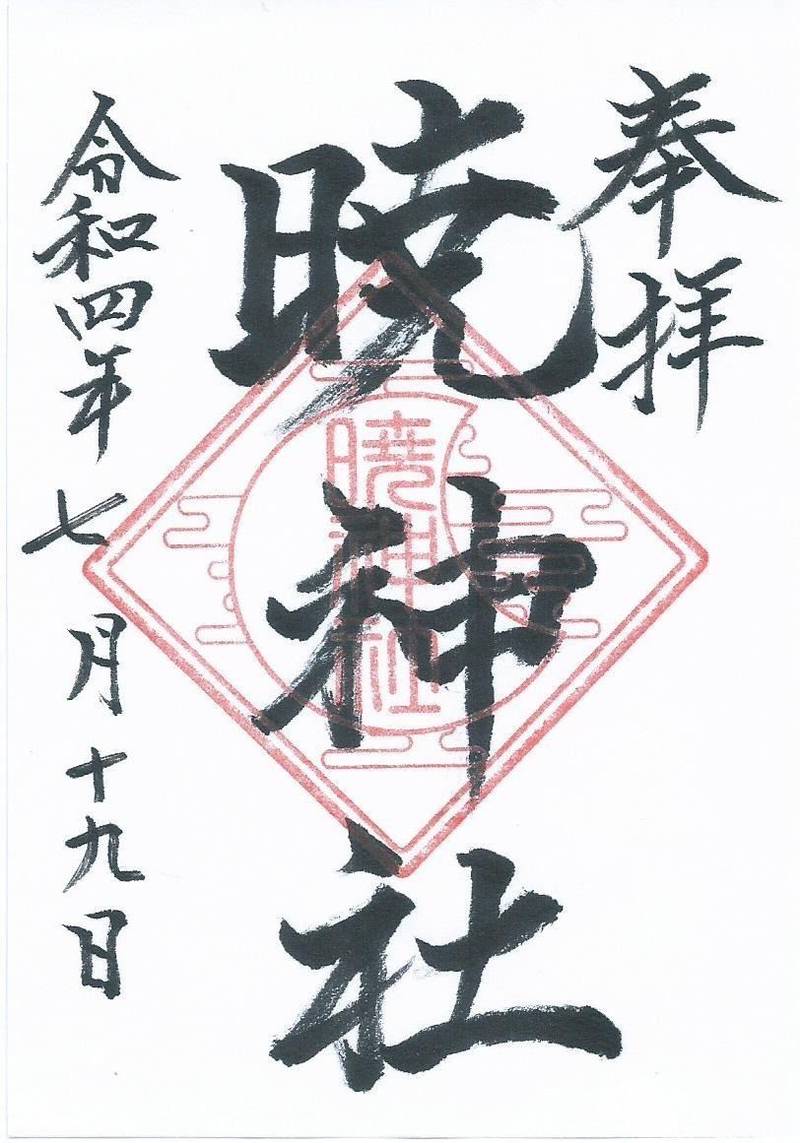 奉拝
暁神社
暁神社
令和四年七月十九日